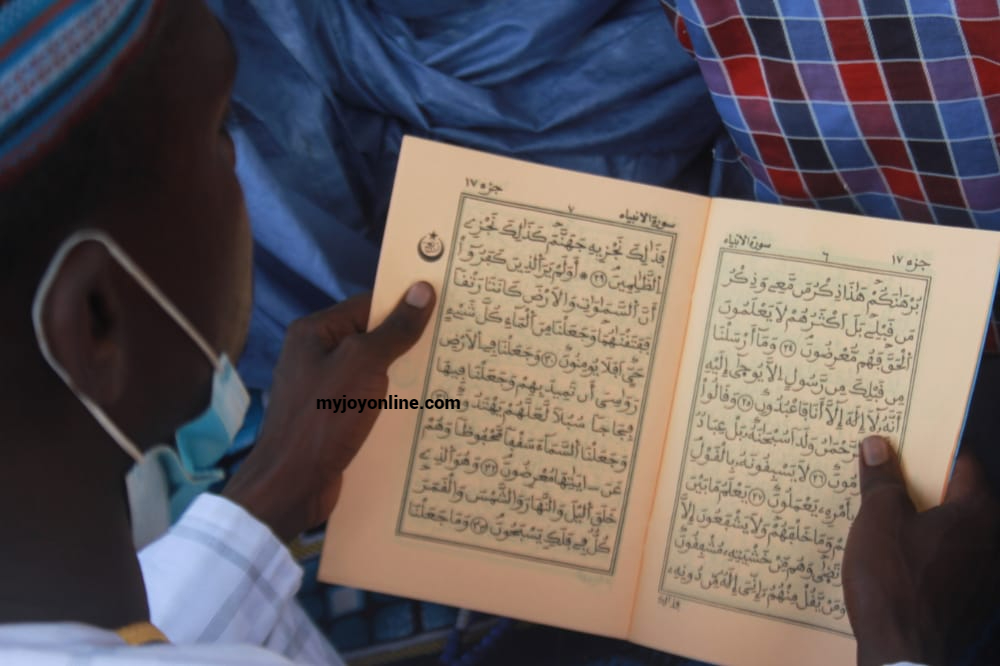 جزء ١٧
٦
سورة الانبياء
بُرْهَٰنَكُمْ هَٰذَا ذِكْرُ مَن مَّعِىَ وَذِكْرُ
مَن قَبْلِى بَلْ أَكْثَرُهُمْ لَا يَعْلَمُونَ
ٱلْحَقَّ فَهُم مُّعْرِضُونَ ٢٤ وَمَآ أَرْسَلْنَا
مِن قَبْلِكَ مِن رَّسُولٍ إِلَّا يُوحَىٰٓ إِلَيْهِ
أَنَّهُ لَآ إِلَٰهَ إِلَّآ أَنَا۠ فَٱعْبُدُونِ ٢٥ وَقَالُوا۟
وَلَدًا سُبْحَٰنَهُ بَلْ عِبَادٌ
مُونَ ٢٦ لَا يَسْبِقُونَهُ بِٱلْقَوْلِ
بِأَمْرِهِ يَعْمَلُونَ ٢٧ يَعْلَمُ مَا بَيْنَ
وَمَا خَلْفَهُمْ وَلَا يَشْفَعُونَ إِلَّا
تَضَىٰ وَهُم مِّنْ خَشْيَتِهِ مُشْفِقُونَ
وَمَن يَقُلْ مِنْهُمْ إِنِّىٓ إِلَٰهٌ مِّن دُونِهِ
فذلك
سورة الانبياء
٧
جزء ١٧
فَذَٰلِكَ نَجْزِيهِ جَهَنَّمَ كَذَٰلِكَ نَجْزِى
ٱلظَّٰلِمِينَ ٢٩ * أَوَلَمْ يَرَ ٱلَّذِينَ كَفَرُوٓا۟
أَنَّ ٱلسَّمَٰوَٰتِ وَٱلْأَرْضَ كَانَتَا رَتْقًا
فَفَتَقْنَٰهُمَا وَجَعَلْنَا مِنَ ٱلْمَآءِ كُلَّ شَىْءٍ
حَىٍّ أَفَلَا يُؤْمِنُونَ ٣٠ وَجَعَلْنَا فِى ٱلْأَرْضِ
رَوَٰسِىَ أَن تَمِيدَ بِهِمْ وَجَعَلْنَا فِيهَا
فِجَاجًا سُبُلًا لَّعَلَّهُمْ يَهْتَدُونَ
وَجَعَلْنَا ٱلسَّمَآءَ سَقْفًا مَّحْفُوظًا وَهُمْ
عَنْ ءَايَٰتِهَا مُعْرِضُونَ ٣٢ وَهُوَ ٱلَّذِى
خَلَقَ ٱلَّيْلَ وَٱلنَّهَارَ وَٱلشَّمْسَ وَٱلْقَمَرَ
كُلٌّ فِى فَلَكٍ يَسْبَحُونَ ٣٣ وَمَا جَعَلْنَا
myjoyonline.com